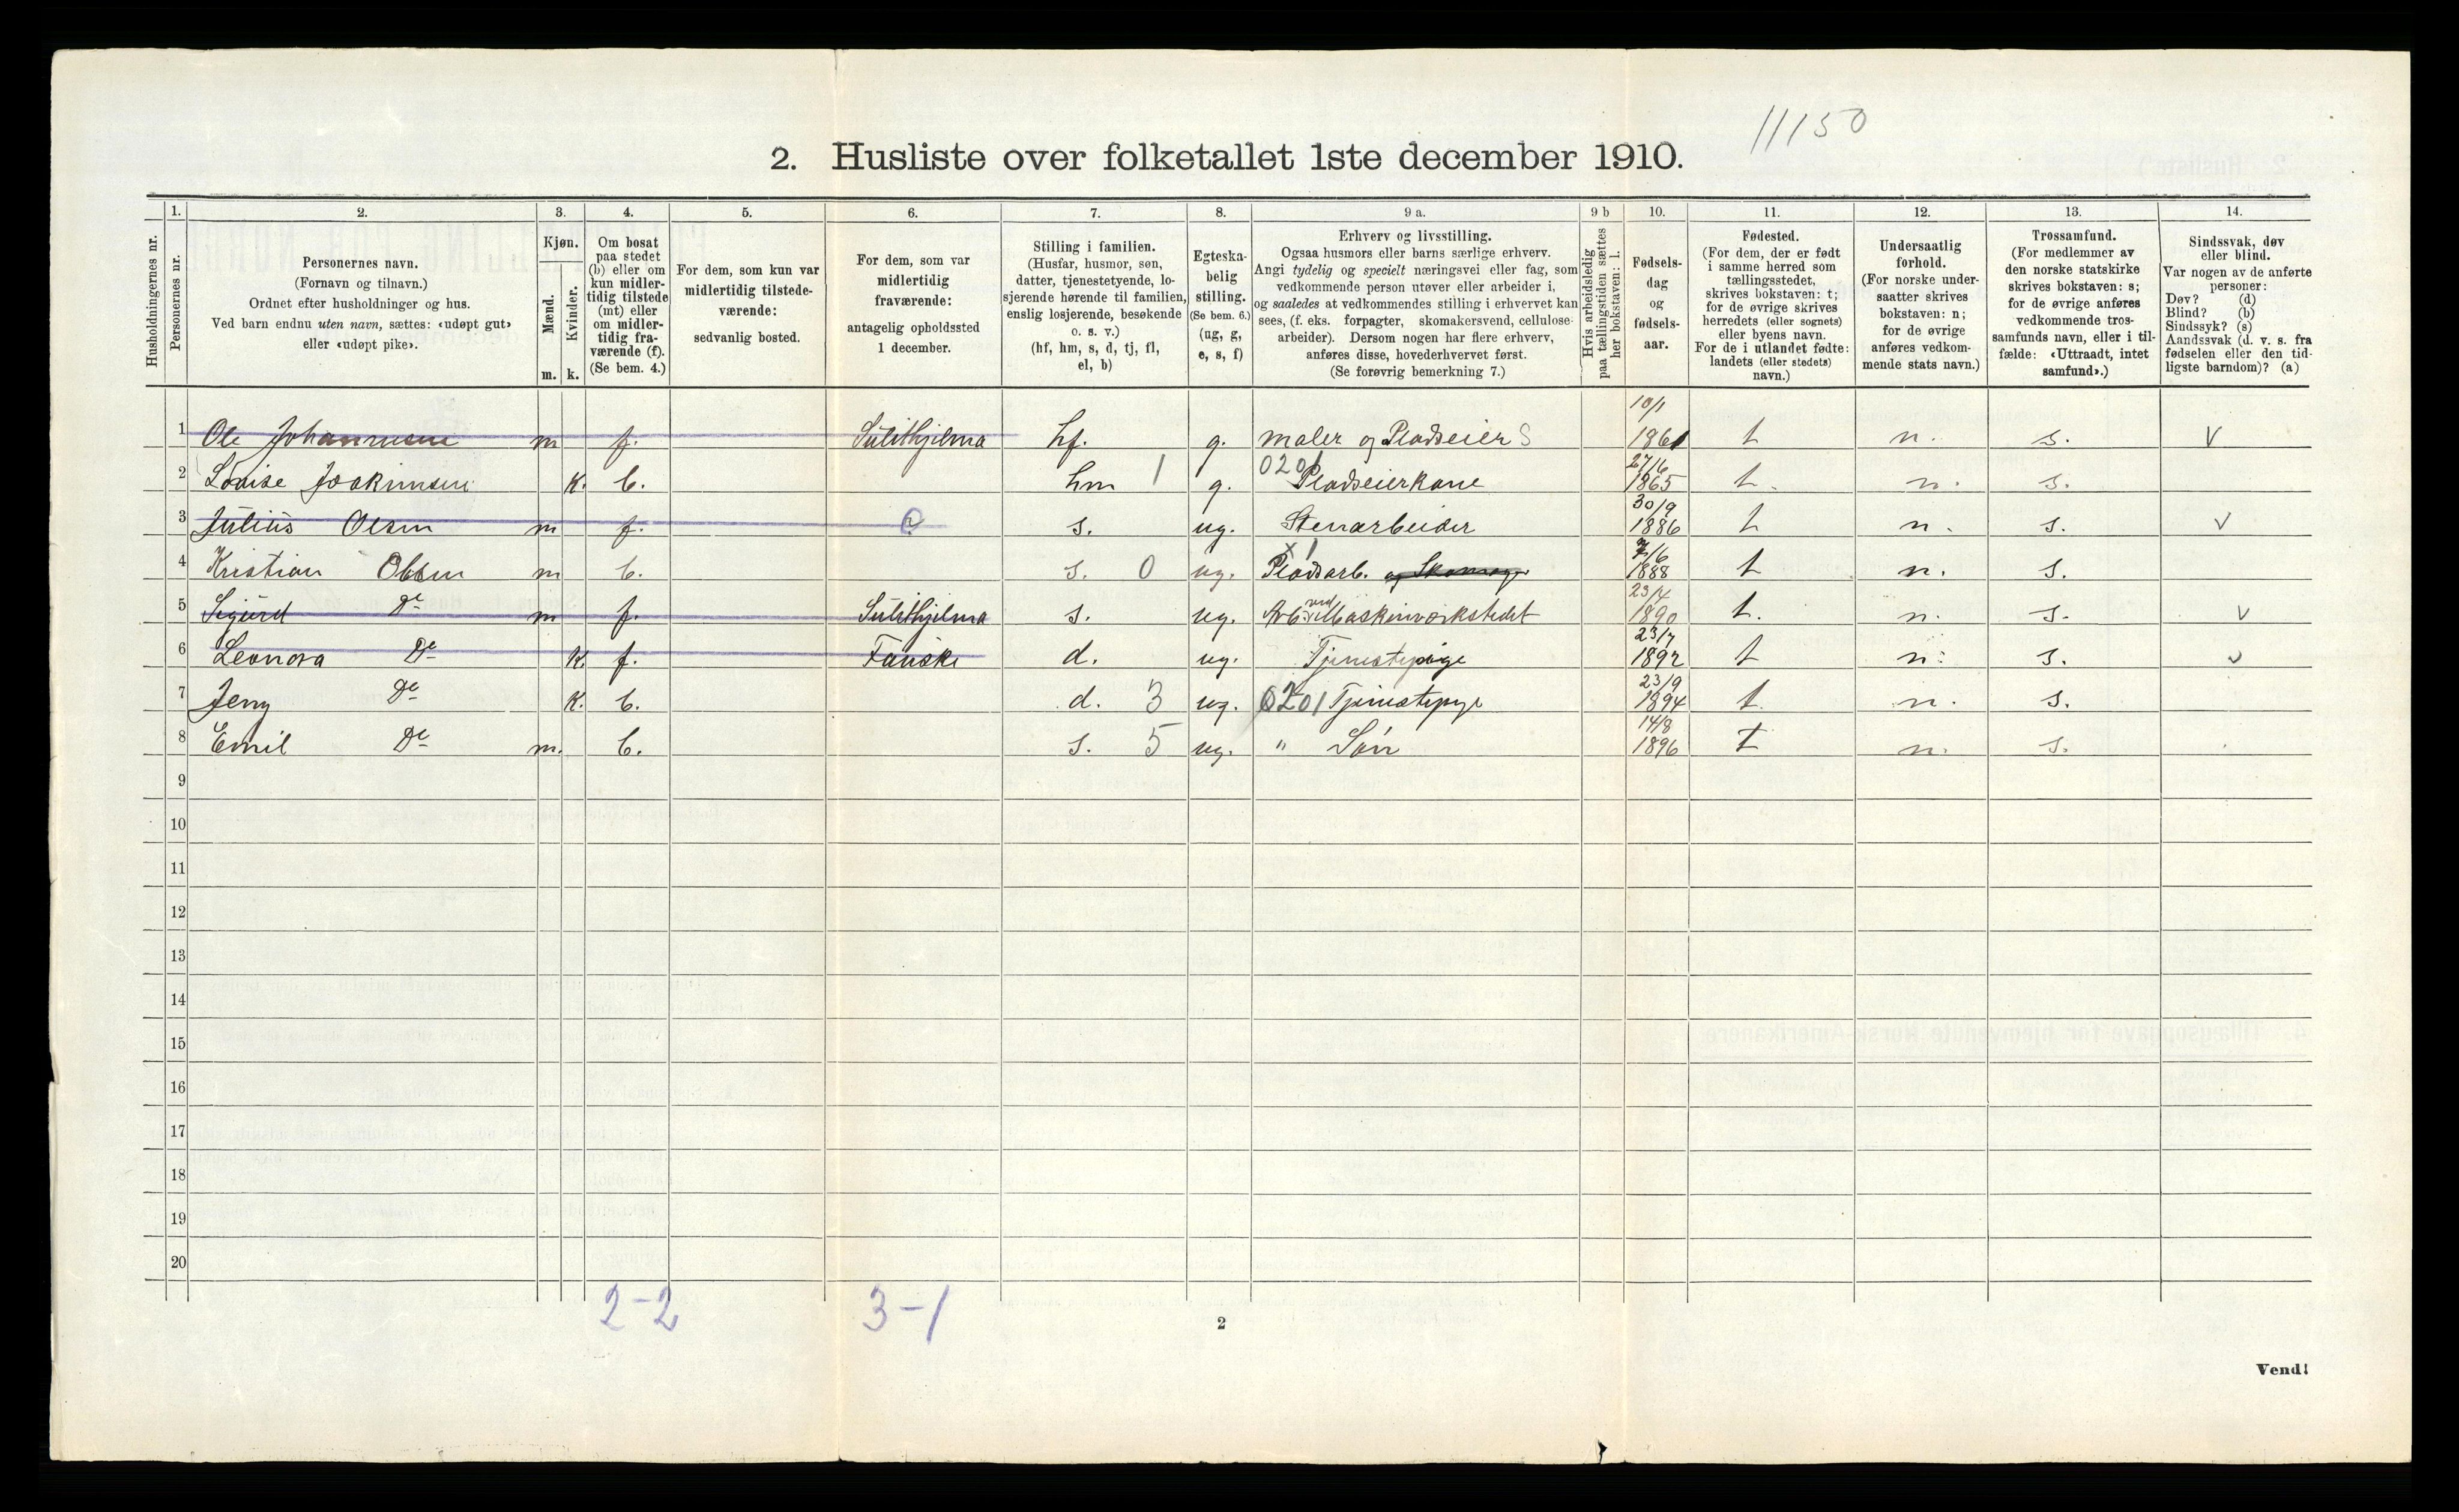 11150
2. Husliste over folketallet 1ste december 1910.
1. 2. 3. 4. 5. 6. 7. 8. 9 a. 9 b 10. 11. 12. 13. 14.
Husholdningernes nr.
Personernes nr.
Personernes navn.
(Fornavn og tilnavn.)
Ordnet efter husholdninger og hus.
Ved barn endnu uten navn, sættes: «udøpt gut»
eller «udøpt pike».
Kjøn.
Mænd.
Kvinder.
m. k.
Om bosat
paa stedet
(b) eller om
kun midler-
tidig tilstede
(mt) eller
om midler-
tidig fra-
værende (f).
(Se bem. 4.)
For dem, som kun var
midlertidig tilstede-
værende:
sedvanlig bosted.
For dem, som var
midlertidig
fraværende:
antagelig opholdssted
1 december.
Stilling i familien.
(Husfar, husmor, søn,
datter, tjenestetyende, lo-
sjerende hørende til familien,
enslig losjerende, besøkende
o. s. v.)
(hf, hm, s, d, tj, fl,
el, b)
Egteska-
belig
stilling.
(Se bem. 6.)
(ug, g,
e, s, f)
Erhverv og livsstilling.
Ogsaa husmors eller barns særlige erhverv.
Angi tydelig og specielt næringsvei eller fag, som
vedkommende person utøver eller arbeider i,
og saaledes at vedkommendes stilling i erhvervet kan
sees, (f. eks. forpagter, skomakersvend, cellulose-
arbeider). Dersom nogen har flere erhverv,
anføres disse, hovederhvervet først.
(Se forøvrig bemerkning 7.)
Hvis arbeidsledig
paa tællingstiden sættes
her bokstaven: l.
Fødsels-
dag
og
fødsels-
aar.
Fødested.
(For dem, der er født
i samme herred som
tællingsstedet,
skrives bokstaven: t;
for de øvrige skrives
herredets (eller sognets)
eller byens navn.
For de i utlandet fødte:
landets (eller stedets)
navn.)
Undersaatlig
forhold.
(For norske under-
saatter skrives
bokstaven: n;
for de øvrige
anføres vedkom-
mende stats navn.)
Trossamfund.
(For medlemmer av
den norske statskirke
skrives bokstaven: s;
for de øvrige anføres
vedkommende tros-
samfunds navn, eller i til-
fælde: «Uttraadt, intet
samfund».)
Sindssvak, døv
eller blind.
Var nogen av de anførte
personer:
Døv? (d)
Blind? (b)
Sindssyk? (s)
Aandssvak (d. v. s. fra
fødselen eller den tid-
ligste barndom)? (a)
1 Ole Johannesen m f. Sulithjelma hf. g. maler og Pladseier S 10/1 1861 t n. s. V
2 Louise Joakimsen K. b. hm 1 g. 0201 Pladseierkone 27/6 1865 t. n. s.
3 Julius Olsen m f. ? s. ug. Stenarbeider 30/9 1886 t n. s. V
4 Kristian Olsen m b. s. 0 ug. X1 Pladsarb. og Skomager 7/6 1888 t n. s.
5 Sigurd Do m f. Sulithjelma s. ug. Arb. ved Maskinværkstedet 23/4 1890 t. n. s. V
6 Leonora Do K. f. Fauske d. ug. Tjenestepige 23/7 1892 t n. s. V
7 Jeny Do K. b. d. 3 ug. 0201 Tjenestepige 23/9 1894 t n. s.
8 Emil Do m. b. s. 5 ug. " Søn 14/8 1896 t n. s.
9
10
11
12
13
14
15
16
17
18
19
20
2-2 3-1
2
Vend!